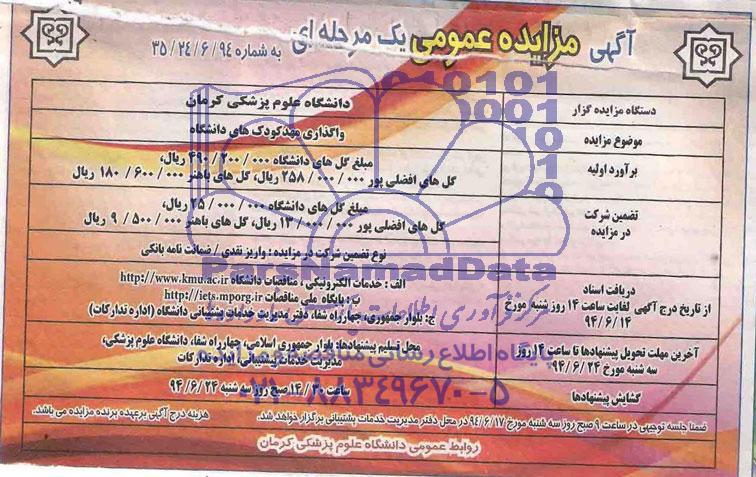 آگهی مزایده عمومی یک مرحله ای به شماره ۳۵/۲۴/۶/۹۴
دستگاه مزایده گزار
دانشگاه علوم پزشکی کرمان
موضوع مزایده
واگذاری مهدکودک های دانشگاه
برآورد اولیه
مبلغ گل های دانشگاه ۴۹۰/۲۰۰/۰۰۰ ریال،
گل های افضلی پور ۲۵۸/۰۰۰/۰۰۰ ریال، گل های باهنر ۱۸۰/۶۰۰/۰۰۰ ریال
تضمین شرکت
در مزایده
مبلغ گل های دانشگاه ۲۵/۰۰۰/۰۰۰ ریال،
گل های افضلی پور ۱۳/۰۰۰/۰۰۰ ریال، گل های باهنر ۹/۵۰۰/۰۰۰ ریال
نوع تضمین شرکت در مزایده : واریز نقدی / ضمانت نامه بانکی
دریافت اسناد
از تاریخ درج آگهی لغایت ساعت ۱۴ روز شنبه مورخ
۹۴/۶/۱۴
الف : خدمات الکترونیکی ، مناقصات دانشگاه http://www.kmu.ac.ir
ب: پایگاه ملی مناقصات http://iets.mporg.ir
ج: بلوار جمهوری، چهارراه شفا، دفتر مدیریت خدمات پشتیبانی دانشگاه (اداره تدارکات)
آخرین مهلت تحویل پیشنهادها تا ساعت ۱۴ روز
سه شنبه مورخ ۹۴/۶/۲۴
محل تسلیم پیشنهادها: بلوار جمهوری اسلامی، چهارراه شفا، دانشگاه علوم پزشکی،
مدیریت خدمات پشتیبانی، اداره تدارکات
گشایش پیشنهادها
صبح روز سه شنبه ۹۴/۶/۲۴
ضمنا جلسه توجیهی در ساعت ۹ صبح روز سه شنبه مورخ ۹۴/۶/۱۷ در محل دفتر مدیریت خدمات پشتیبانی برگزار خواهد شد. هزینه درج آگهی برعهده برنده مزایده می باشد.
روابط عمومی دانشگاه علوم پزشکی کرمان
ParsNamadData
پایگاه اطلاع رسانی مناقصه و مزایده
۰۲۱-۸۸۳۴۹۶۷۰-۵